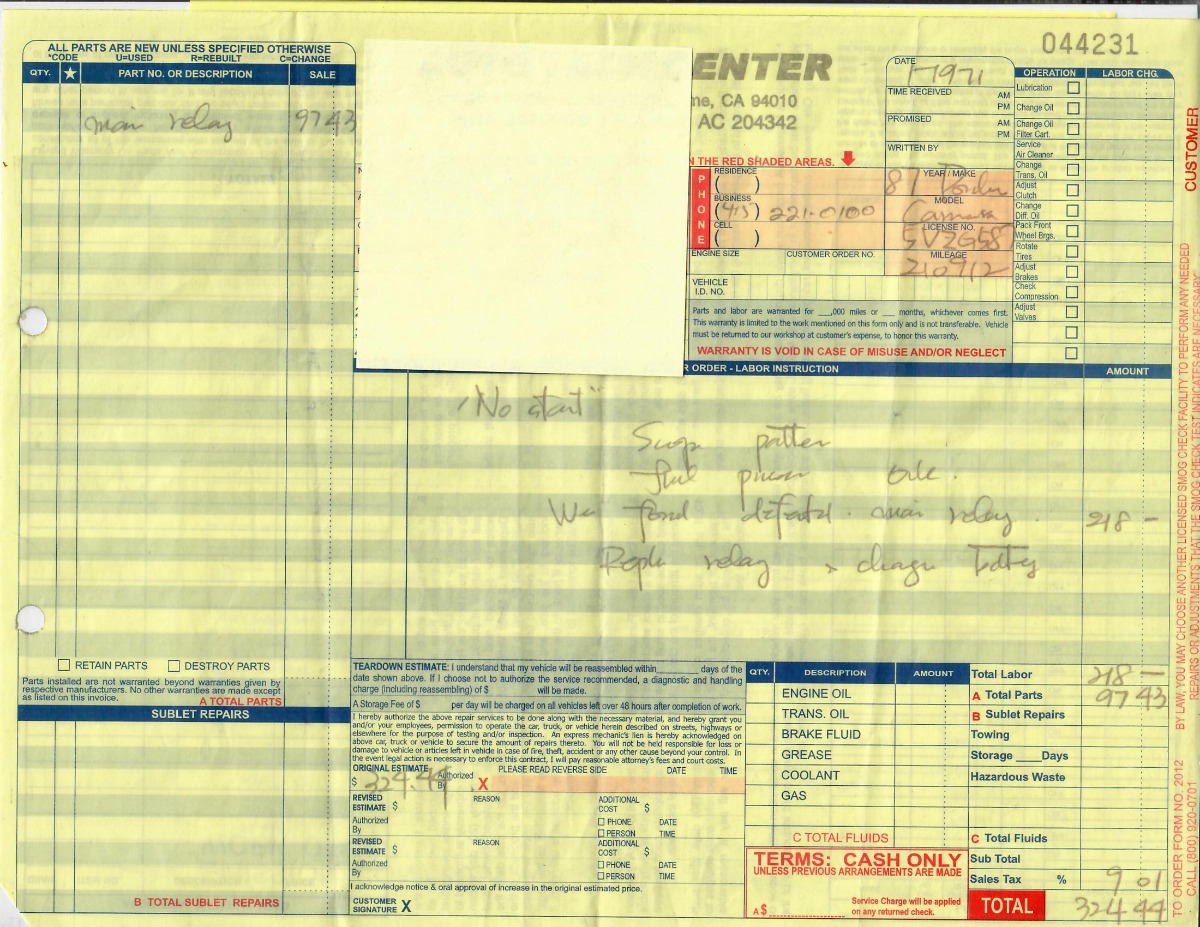 044231
ALL PARTS ARE NEW UNLESS SPECIFIED OTHERWISE
*CODE U=USED R=REBUILT C=CHANGE
QTY. ★ PART NO. OR DESCRIPTION SALE
main relay 97 43
ENTER
ne, CA 94010
AC 204342
N THE RED SHADED AREAS.
DATE
TIME RECEIVED AM PM
PROMISED AM PM
WRITTEN BY
PHONE
RESIDENCE
( )
BUSINESS
(415) 221-0100
CELL
( )
YEAR / MAKE
87
MODEL
LICENSE NO.
MILEAGE
210912
ENGINE SIZE CUSTOMER ORDER NO.
VEHICLE
I.D. NO.
Parts and labor are warranted for ___,000 miles or ___ months, whichever comes first.
This warranty is limited to the work mentioned on this form only and is not transferable. Vehicle
must be returned to our workshop at customer's expense, to honor this warranty.
WARRANTY IS VOID IN CASE OF MISUSE AND/OR NEGLECT
OPERATION LABOR CHG.
Lubrication
Change Oil
Change Oil
Filter Cart.
Service
Air Cleaner
Change
Trans. Oil
Adjust
Clutch
Change
Diff. Oil
Pack Front
Wheel Brgs.
Rotate
Tires
Adjust
Brakes
Check
Compression
Adjust
Valves
CUSTOMER
R ORDER - LABOR INSTRUCTION AMOUNT
"No start"
main relay. 218 -
relay
RETAIN PARTS DESTROY PARTS
Parts installed are not warranted beyond warranties given by
respective manufacturers. No other warranties are made except
as listed on this invoice.
A TOTAL PARTS
SUBLET REPAIRS
B TOTAL SUBLET REPAIRS
TEARDOWN ESTIMATE: I understand that my vehicle will be reassembled within__________ days of the
date shown above. If I choose not to authorize the service recommended, a diagnostic and handling
charge (including reassembling) of $ will be made.
A Storage Fee of $ per day will be charged on all vehicles left over 48 hours after completion of work.
I hereby authorize the above repair services to be done along with the necessary material, and hereby grant you
and/or your employees, permission to operate the car, truck, or vehicle herein described on streets, highways or
elsewhere for the purpose of testing and/or inspection. An express mechanic's lien is hereby acknowledged on
above car, truck or vehicle to secure the amount of repairs thereto. You will not be held responsible for loss or
damage to vehicle or articles left in vehicle in case of fire, theft, accident or any other cause beyond your control. In
the event legal action is necessary to enforce this contract, I will pay reasonable attorney's fees and court costs.
ORIGINAL ESTIMATE PLEASE READ REVERSE SIDE DATE TIME
$ 324.44 Authorized By X
REVISED ESTIMATE $ REASON ADDITIONAL COST $
Authorized By PHONE DATE
PERSON TIME
REVISED ESTIMATE $ REASON ADDITIONAL COST $
Authorized By PHONE DATE
PERSON TIME
I acknowledge notice & oral approval of increase in the original estimated price.
CUSTOMER SIGNATURE X
QTY. DESCRIPTION AMOUNT
ENGINE OIL
TRANS. OIL
BRAKE FLUID
GREASE
COOLANT
GAS
C TOTAL FLUIDS
TERMS: CASH ONLY
UNLESS PREVIOUS ARRANGEMENTS ARE MADE
A $ Service Charge will be applied
on any returned check.
Total Labor 218 -
A Total Parts 97 43
B Sublet Repairs
Towing
Storage ____Days
Hazardous Waste
C Total Fluids
Sub Total
Sales Tax % 9 01
TOTAL 324 44
BY LAW, YOU MAY CHOOSE ANOTHER LICENSED SMOG CHECK FACILITY TO PERFORM ANY NEEDED
REPAIRS OR ADJUSTMENTS THAT THE SMOG CHECK TEST INDICATES ARE NECESSARY.
TO ORDER FORM NO. 2012
CALL (800) 920-0701